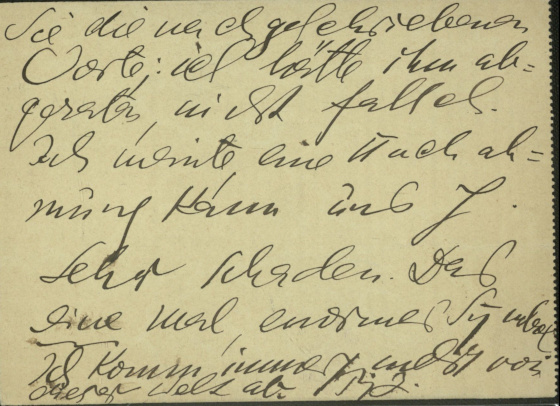 Sie die nachgeschriebenen
Worte; ich hätte ihm ab=
geraten, nicht falsch.
Ich meinte, eine Nachah=
mung kann uns
sehr schaden. Das
eine mal, enormes
Ich komm immer nicht von
dieser Welt ab.